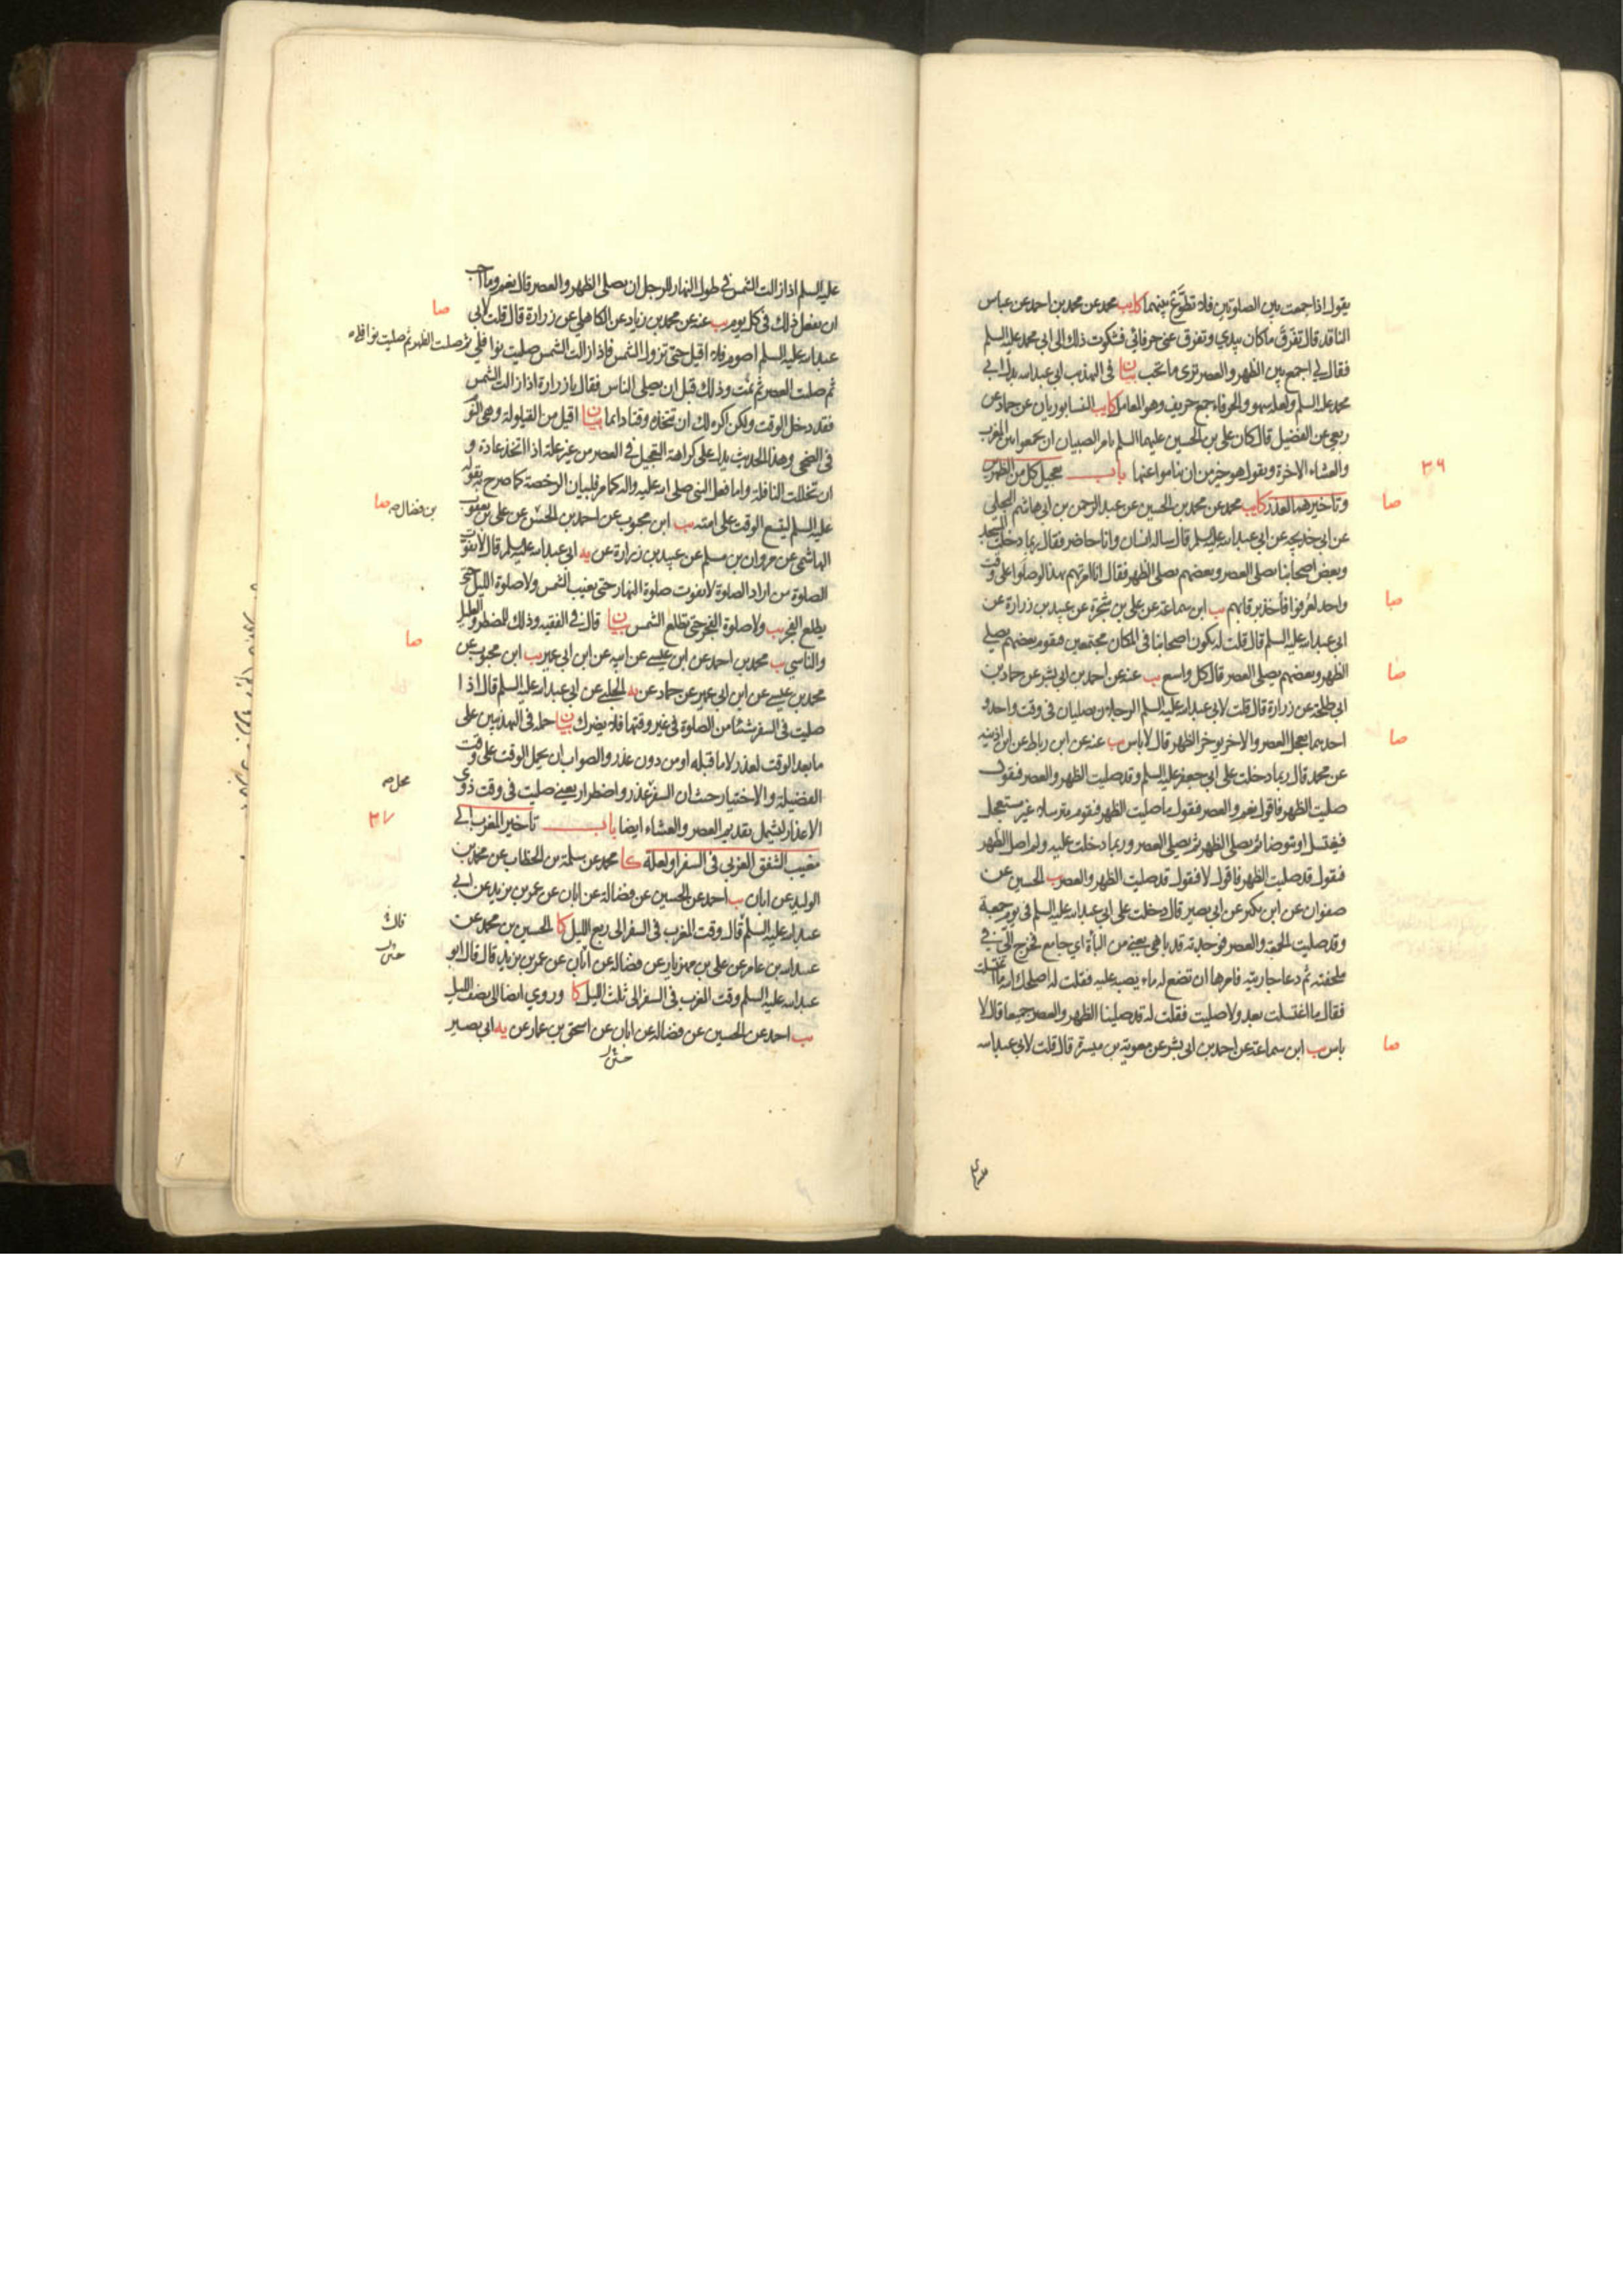 يقول اذا جمعت بين الصلوتين فلا تطوع بينهما كا يب محمد عن محمد بن احمد عن عباس
الناقد قال تفرق ما كان بيدي وتفرق عني حرفائي فشكوت ذلك الى ابي محمد عليه السلم
فقال لي اجمع بين الظهر والعصر ترى ما تحب بيان في التهذيب ابي عبد الله بدل ابي
محمد عليه السلم ولعله سهو والحرفاء جمع حريف وهو المعامل كا يب النيسابوريان عن حماد عن
ربعي عن الفضيل قال كان علي بن الحسين عليهما السلم يامر الصبيان ان يجمعوا بين المغرب
والعشاء الاخرة ويقول هو خير من ان يناموا عنها باب تعجيل كل من الظهرين
٣٦
وتاخيرهما لعذر كا يب محمد عن محمد بن الحسين عن عبد الرحمن بن ابي هاشم البجلي
صا
عن ابي خديجة عن ابي عبد الله عليه السلم قال ساله انسان وانا حاضر فقال ربما دخلت المسجد
وبعض اصحابنا يصلي العصر وبعضهم يصلي الظهر فقال انا امرتهم بهذا لو صلوا على وقت
واحد لعرفوا فاخذ برقابهم يب ابن سماعة عن علي بن شجرة عن عبيد بن زرارة عن
صا
ابي عبد الله عليه السلم قال قلت له يكون اصحابنا في المكان مجتمعين فيقوم بعضهم يصلي
الظهر وبعضهم يصلي العصر قال كل واسع يب عنه عن احمد بن ابي بشر عن حماد بن
صا
ابي طلحة عن زرارة قال قلت لابي عبد الله عليه السلم الرجلان يصليان في وقت واحد و
احدهما يعجل العصر والاخر يوخر الظهر قال لا باس يب عنه عن ابن رباط عن ابن اذينه
صا
عن محمد قال ربما دخلت على ابي جعفر عليه السلم وقد صليت الظهر والعصر فيقول
صليت الظهر فاقول نعم والعصر فيقول ما صليت الظهر فيقوم مترسلا غير مستعجل
فيغتسل او يتوضا ثم يصلي الظهر ثم يصلي العصر وربما دخلت عليه ولم اصل الظهر
فيقول قد صليت الظهر فاقول لا فيقول قد صليت الظهر والعصر يب الحسين عن
صفوان عن ابن بكير عن ابي بصير قال دخلت على ابي عبد الله عليه السلم في يوم جمعة
وقد صليت الجمعة والعصر فوجدته قد باهى يعني من الباة اي جامع فخرج الي في
ملحفته ثم دعا جاريته فامرها ان تضع له ماء يصبه عليه فقلت له اصلحك الله ما اغتسلت
فقال ما اغتسلت بعد ولا صليت فقلت له قد صلينا الظهر والعصر جميعا قال لا
باس يب ابن سماعة عن احمد بن ابي بشر عن معوية بن ميسرة قال قلت لابي عبد الله
صا
عليه السلم اذا زالت الشمس في طول النهار للرجل ان يصلي الظهر والعصر قال نعم وما احب
ان يفعل ذلك في كل يوم يب عنه عن محمد بن زياد عن الكاهلي عن زرارة قال قلت لابي
صا
عبد الله عليه السلم اصوم فلا اقيل حتى تزول الشمس فاذا زالت الشمس صليت نوافلي ثم صليت الظهر ثم صليت نوافله
ثم صليت العصر ثم نمت وذلك قبل ان يصلي الناس فقال يا زرارة اذا زالت الشمس
فقد دخل الوقت ولكن اكره لك ان تتخذه وقتا دائما بيان اقيل من القيلولة وهي النوم
في الضحى وهذا الحديث يدل على كراهة التعجيل في العصر من غير علة اذا اتخذ عادة و
ان تخللت النافلة واما فعل النبي صلى الله عليه واله كما مر فلبيان الرخصة كما صرح به بقوله
عليه السلم ليتسع الوقت على امته يب ابن محبوب عن احمد بن الحسن عن علي بن يعقوب
بن فضال صا
الهاشمي عن مروان بن مسلم عن عبيد بن زرارة عن يه ابي عبد الله عليه السلم قال لا يفوت
الصلوة من اراد الصلوة لا يفوت صلوة النهار حتى يغيب الشمس ولا صلوة الليل حتى
يطلع الفجر يب ولا صلوة الفجر حتى تطلع الشمس بيان قال في الفقيه وذلك للمضطر والعليل
والناسي يب محمد بن احمد عن ابن عيسى عن ابيه عن ابن ابي عمير يب ابن محبوب عن
صا
محمد بن عيسى عن ابن ابي عمير عن حماد عن يه الحلبي عن ابي عبد الله عليه السلم قال اذا
صليت في السفر شيئا من الصلوة في غير وقتها فلا يضرك بيان حمله في التهذيبين على
ما بعد الوقت لعذر لا ما قبله او من دون عذر والصواب ان يحمل الوقت على وقت
الفضيلة والاختيار حيث ان السفر عذر واضطرار يعني صليت في وقت ذوي
الاعذار ليشمل تقديم العصر والعشاء ايضا باب تاخير المغرب الى
٣٧
مغيب الشفق الغربي في السفر او لعلة كا محمد عن سلمة بن الخطاب عن محمد بن
الوليد عن ابان يب احمد عن الحسين عن فضالة عن ابان عن عمر بن يزيد عن ابي
عبد الله عليه السلم قال وقت المغرب في السفر الى ربع الليل كا الحسين بن محمد عن
عبد الله بن عامر عن علي بن مهزيار عن فضالة عن ابان عن عمر بن يزيد قال قال ابو
عبد الله عليه السلم وقت المغرب في السفر الى ثلث الليل كا وروي ايضا الى نصف الليل
يب احمد عن الحسين عن فضالة عن ابان عن اسحق بن عمار عن يه ابي بصير